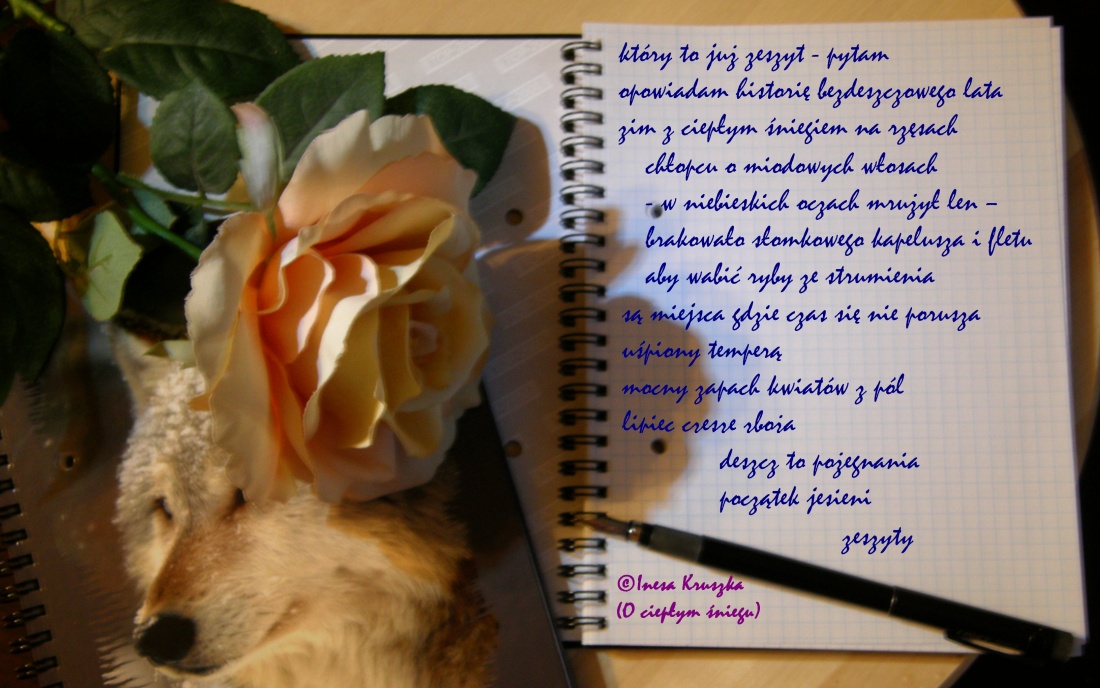 który to już zeszyt - pytam
opowiadam historię bezdeszczowego lata
zim z ciepłym śniegiem na rzęsach
chłopcu o miodowych włosach
- w niebieskich oczach mrużył len –
brakowało słomkowego kapelusza i fletu
aby wabić ryby ze strumienia
są miejsca gdzie czas się nie porusza
uśpiony temperą
mocny zapach kwiatów z pól
lipiec czesze zboża
deszcz to pożegnania
początek jesieni
zeszyty
©Inesa Kruszka
(O ciepłym śniegu)